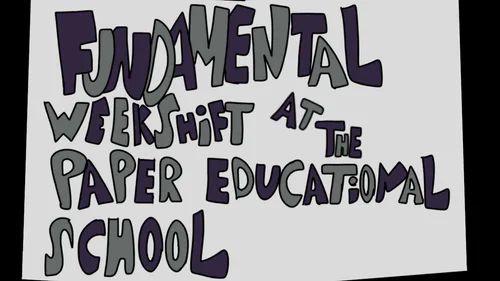 FUNDAMENTAL
WEEKSHIFT AT THE
PAPER EDUCATIONAL
SCHOOL